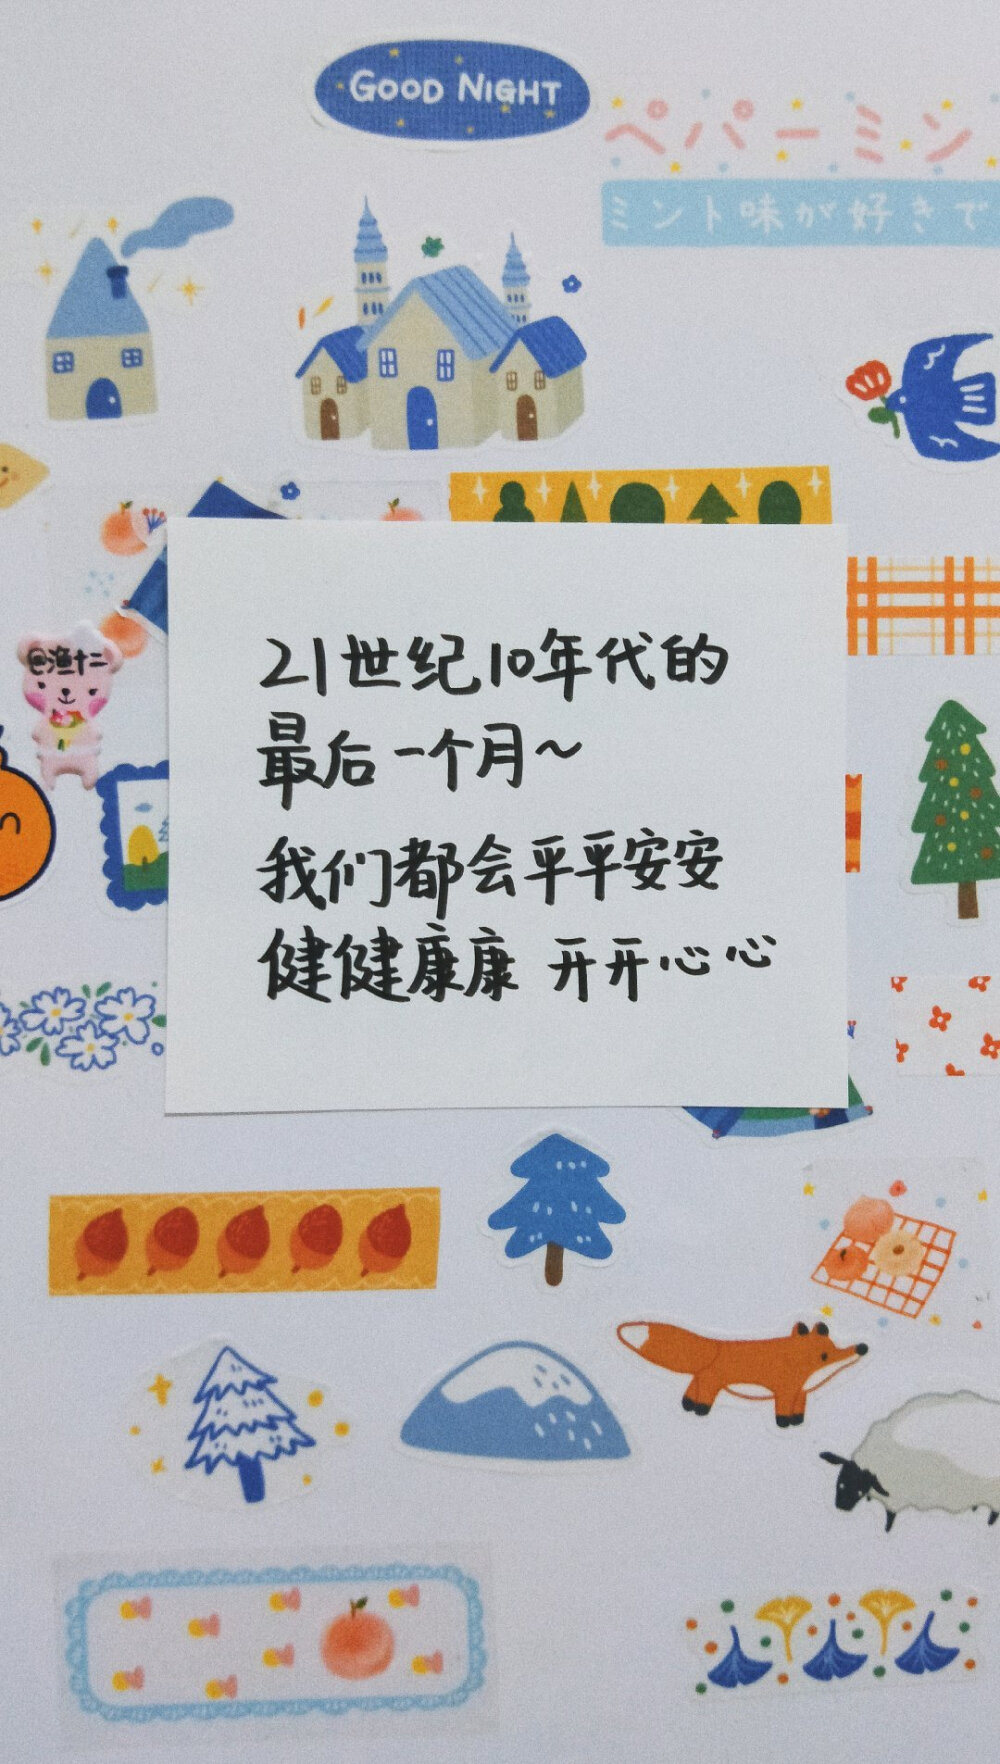 GOOD NIGHT
ペパーミン
ミント味が好きで
21世纪10年代的
最后一个月～
@渔十二
我们都会平平安安
健健康康 开开心心